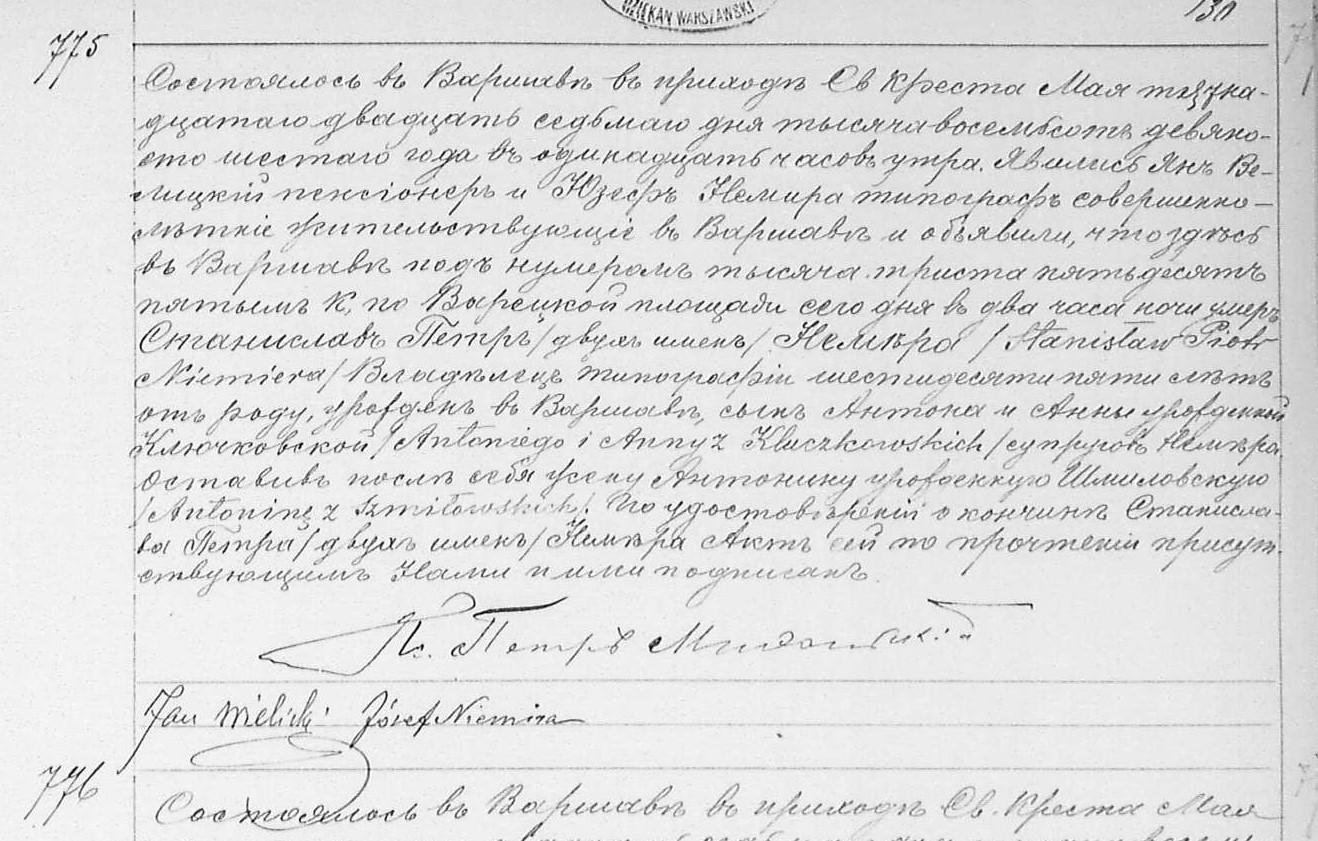 DZIEKAN WARSZAWSKI
130
775
Состоялось въ Варшавѣ въ приходѣ Св Креста Мая пятна-
дцатаго двадцать седьмаго дня тысяча восемьсотъ девяно-
сто шестаго года въ одинадцать часовъ утра. Явились Янъ Ве-
лицкій пенсіонеръ и Юзефъ Немира типографъ совершенно-
лѣтніе жительствующіе въ Варшавѣ и объявили, что здѣсь
въ Варшавѣ подъ нумеромъ тысяча триста пятьдесятъ
пятымъ К, по Варецкой площади сего дня въ два часа ночи умеръ
Станиславъ Петръ /двухъ именъ/ Немѣра /Stanisław Piotr
Niemiera/ Владѣлецъ типографіи шестидесяти пяти лѣтъ
отъ роду, урожденъ въ Варшавѣ, сынъ Антона и Анны урожденной
Ключковской /Antoniego i Anny z Kluczkowskich/ супруговъ Немѣра.
Оставивъ послѣ себя жену Антонину урожденную Шмиловскую
/Antoninę z Szmiłowskich/. По удостовѣреніи о кончинѣ Станисла-
ва Петра /двухъ именъ/ Немѣра Актъ сей по прочтеніи присут-
ствующимъ Нами и ими подписанъ.
Кс. Петръ
Jan Wielicki Józef Niemira
776
Состоялось въ Варшавѣ въ приходѣ Св. Креста Мая